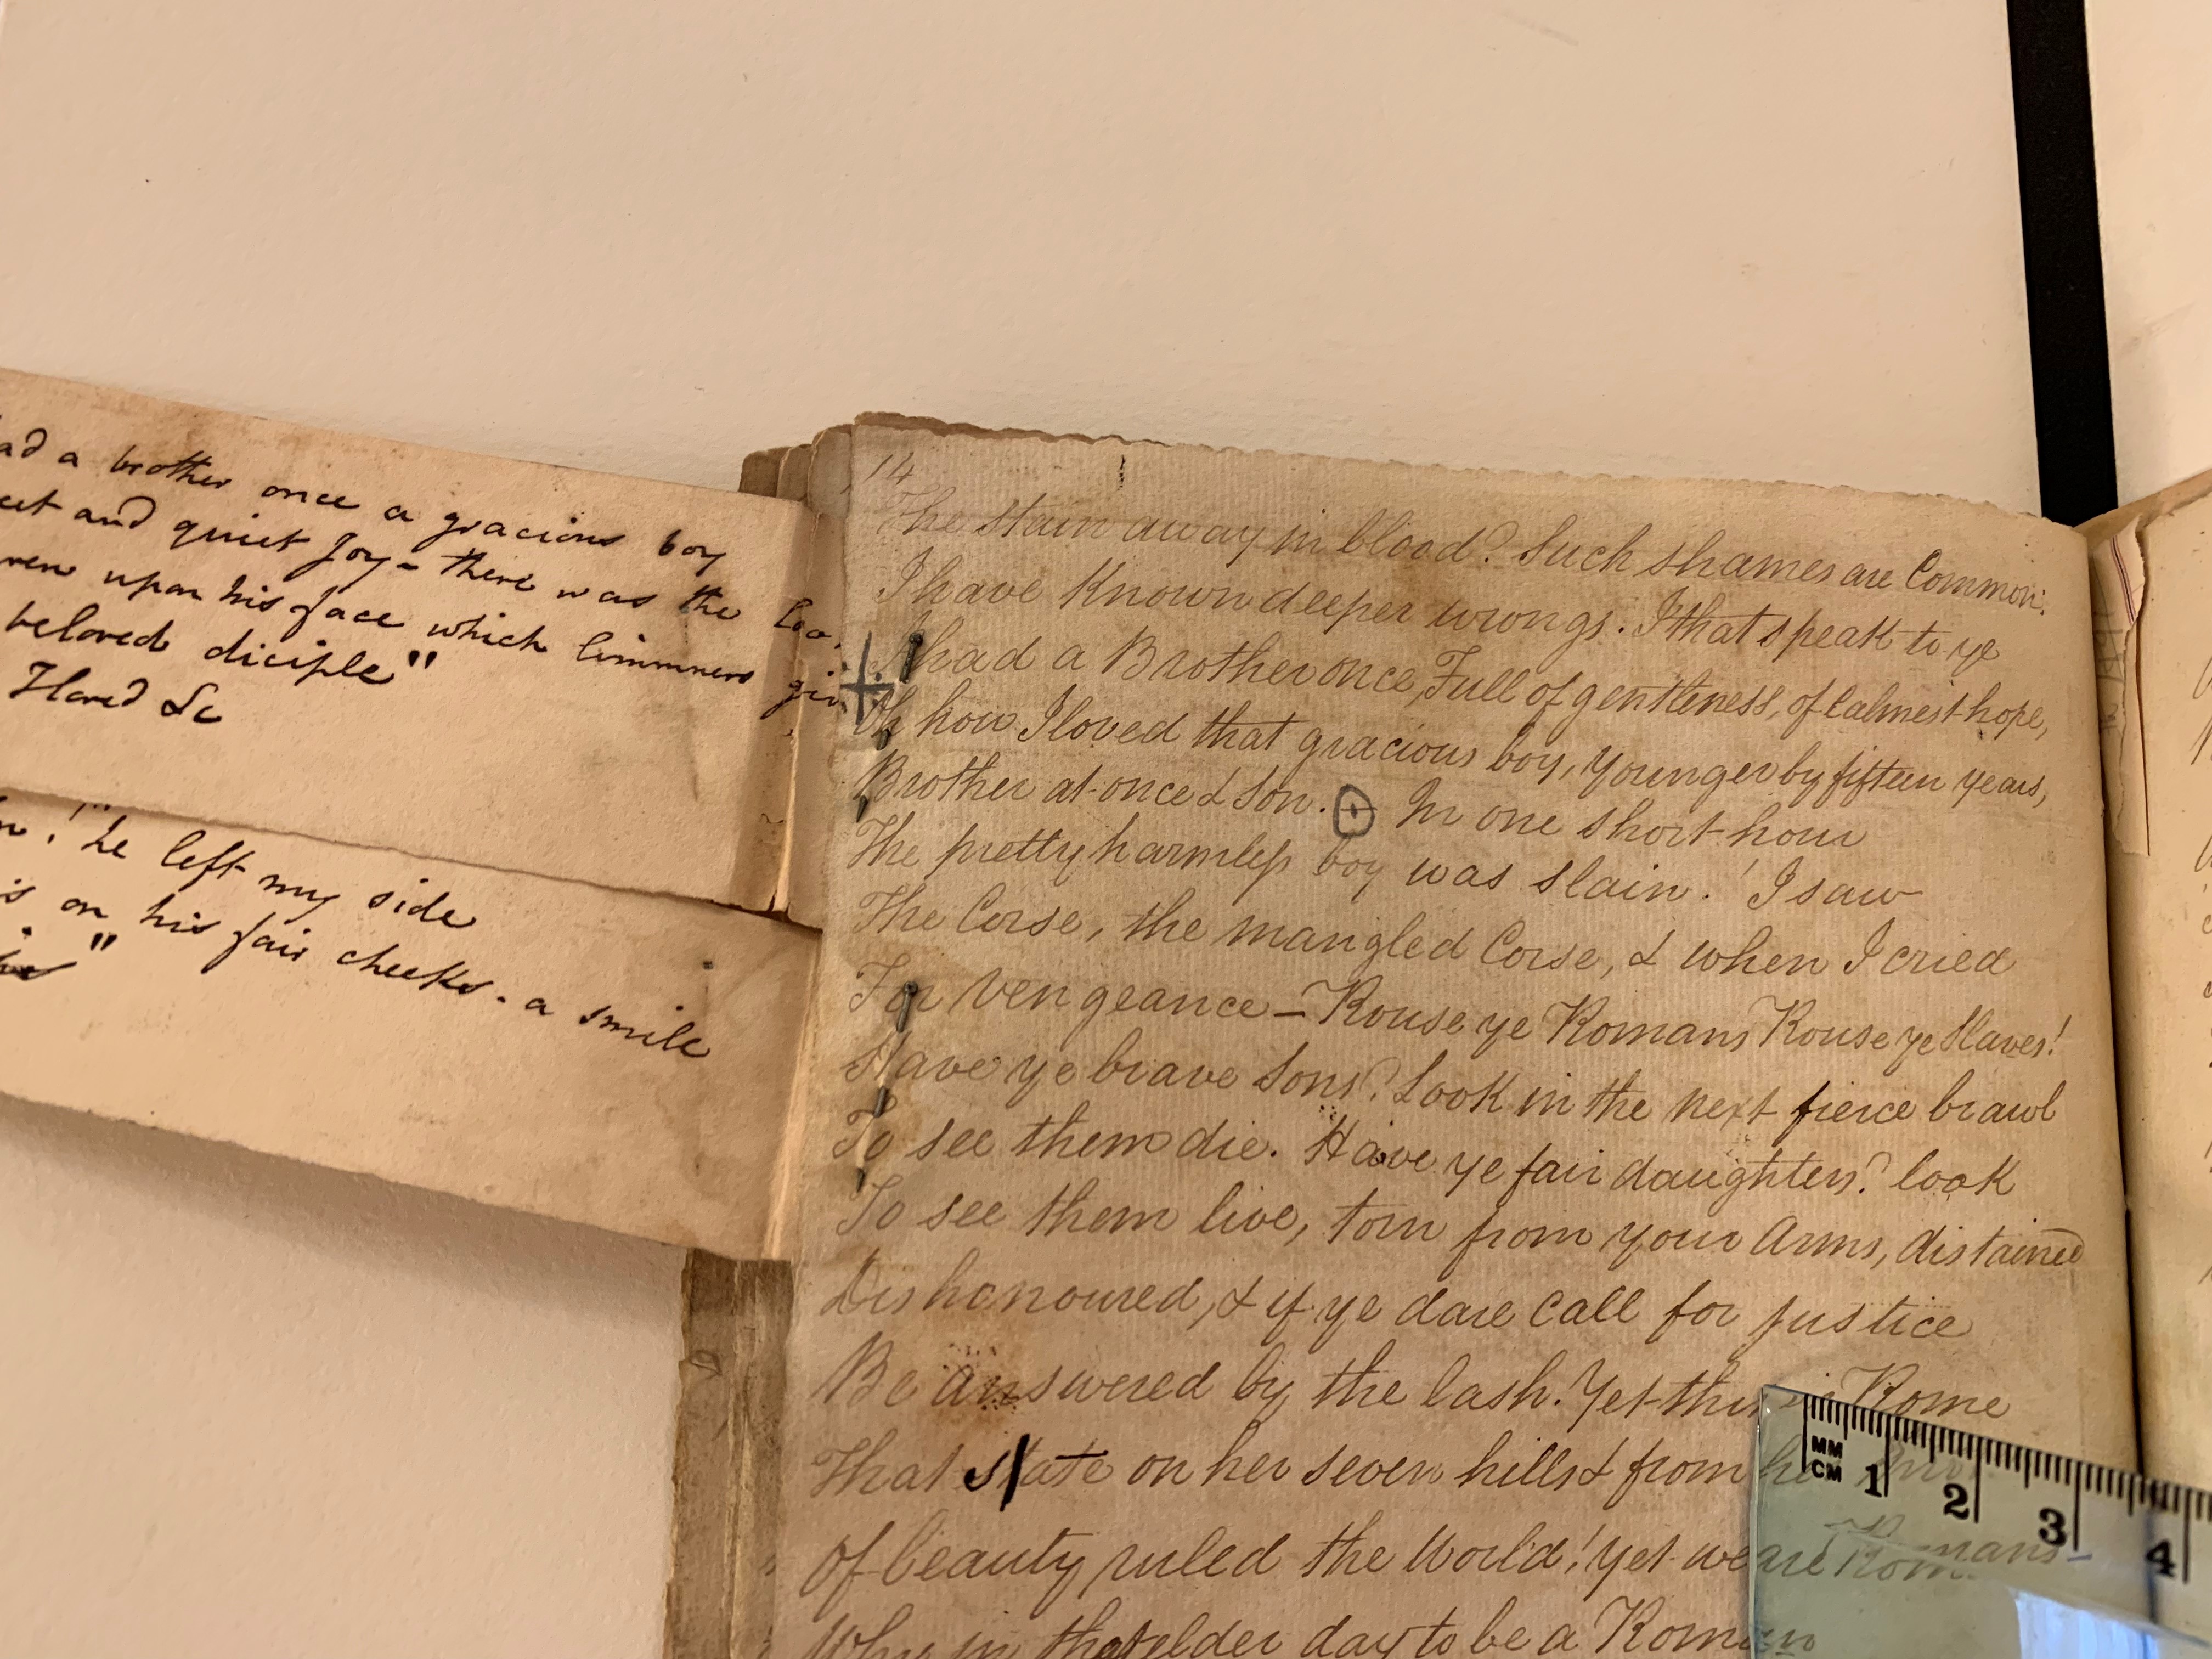 ad a brother once a gracious boy
eet and quiet Joy - there was the loo
ven upon his face which limmners giv
beloved diciple"
Hared &c
! he left my side
is on his fair cheeks - a smile
"
14
The stain away in blood? Such shames are Common.
I have Known deeper wrongs. I that speak to ye
I had a Brother once, Full of gentleness, of Calmest hope,
Oh how I loved that gracious boy, younger by fifteen years,
Brother at once & Son. + In one short hour
The pretty harmless boy was slain! I saw
The Corse, the mangled Corse, & when I cried
For Vengeance - Rouse ye Romans Rouse ye Slaves!
Have ye brave Sons? Look in the next fierce brawl
To see them die. Have ye fair daughters? look
To see them live, torn from your Arms, distained
Dishonoured, & if ye dare Call for Justice
Be answered by the lash! Yet this is Rome
That sate on her seven hills & from her
Of beauty ruled the World! Yet we are Romans
Why in that elder day to be a Roman
MM
CM 1 2 3 4